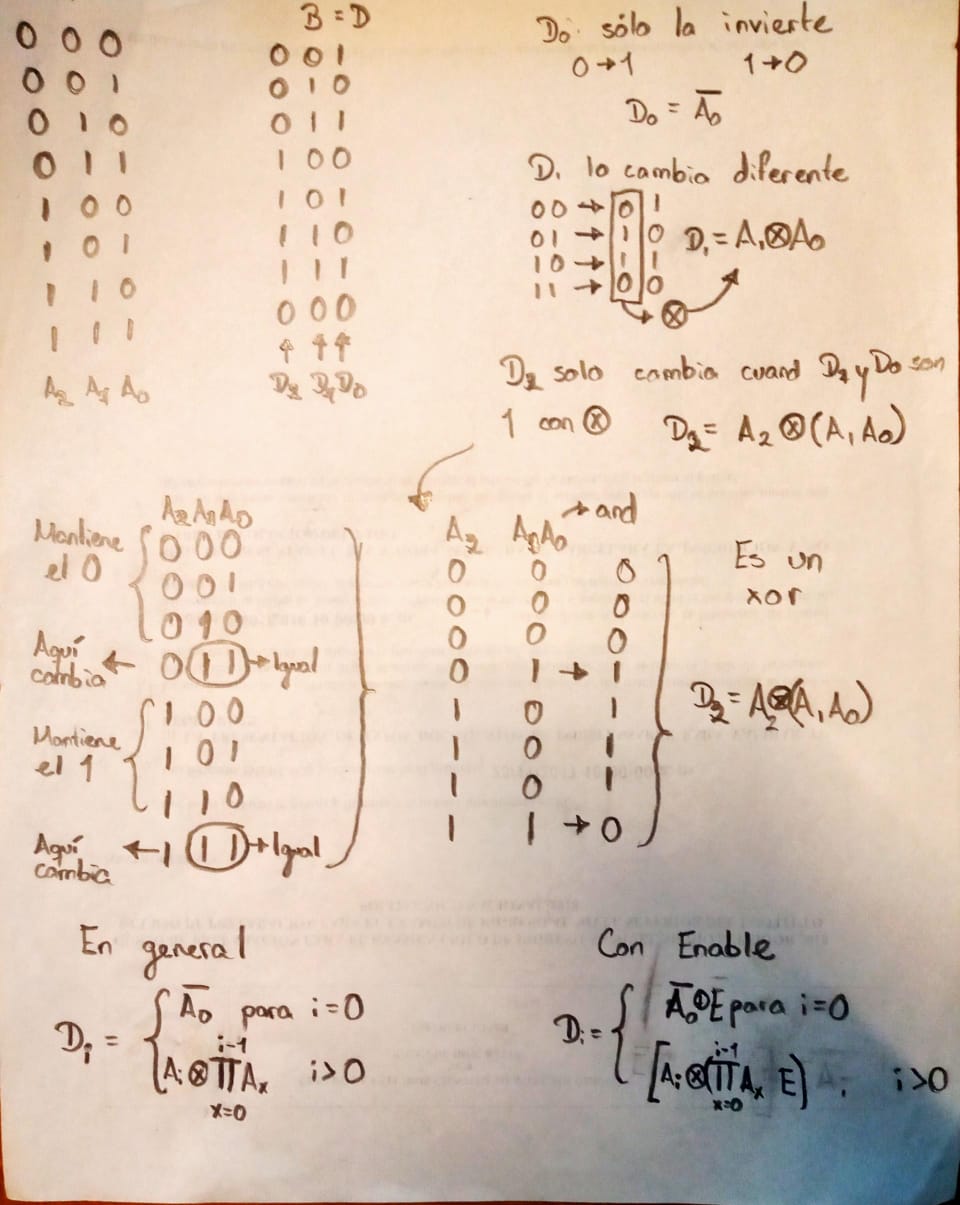 0 0 0
0 0 1
0 1 0
0 1 1
1 0 0
1 0 1
1 1 0
1 1 1
A₂ A₁ A₀
B = D
0 0 1
0 1 0
0 1 1
1 0 0
1 0 1
1 1 0
1 1 1
0 0 0
↑ ↑ ↑
D₂ D₁ D₀
D₀: sólo la invierte
0→1 1→0
D₀ = A̅₀
D₁ lo cambia diferente
00 → 0 1
01 → 1 0 D₁ = A₁⊗A₀
10 → 1 1
11 → 0 0
→ ⊗
D₂ solo cambia cuand D₁ y D₀ son
1 con ⊗ D₂ = A₂⊗(A₁A₀)
A₂ A₁ A₀
Mantiene
el 0
0 0 0
0 0 1
0 1 0
Aquí
cambia ← 0 1 1 → Igual
Mantiene
el 1
1 0 0
1 0 1
1 1 0
Aquí
cambia ← 1 1 1 → Igual
A₂ A₁A₀ → and
0 0 0
0 0 0
0 0 0
0 1 → 1
1 0 1
1 0 1
1 0 1
1 1 → 0
Es un
xor
D₂ = A₂⊗(A₁A₀)
En general
Dᵢ = { A̅₀ para i=0
Aᵢ ⊗ ∏ Aₓ i>0
i-1
x=0
Con Enable
Dᵢ = { para i=0
[Aᵢ⊗(∏ Aₓ E) i>0
i-1
x=0